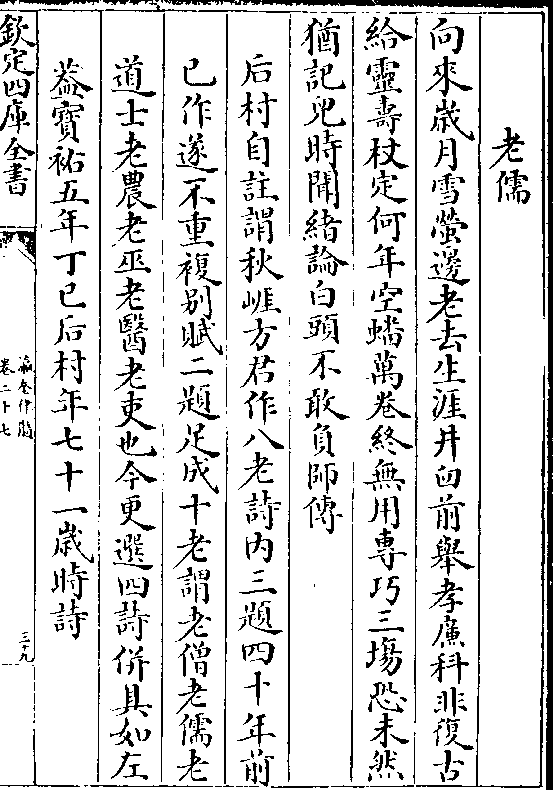 老儒
向來歳月雪螢邊老去生涯井臼前舉孝廉科非復古
給靈壽杖定何年空蟠萬卷終無用專巧三場恐未然
猶記兒時聞緒論白頭不敢負師傳
后村自註謂秋崕方君作八老詩内三題四十年前
已作遂不重複别賦二題足成十老謂老僧老儒老
道士老農老巫老醫老吏也今更選四詩併具如左
葢寳祐五年丁巳后村年七十一歳時詩
欽定四庫全書
瀛奎律髓
卷二十七
三十九